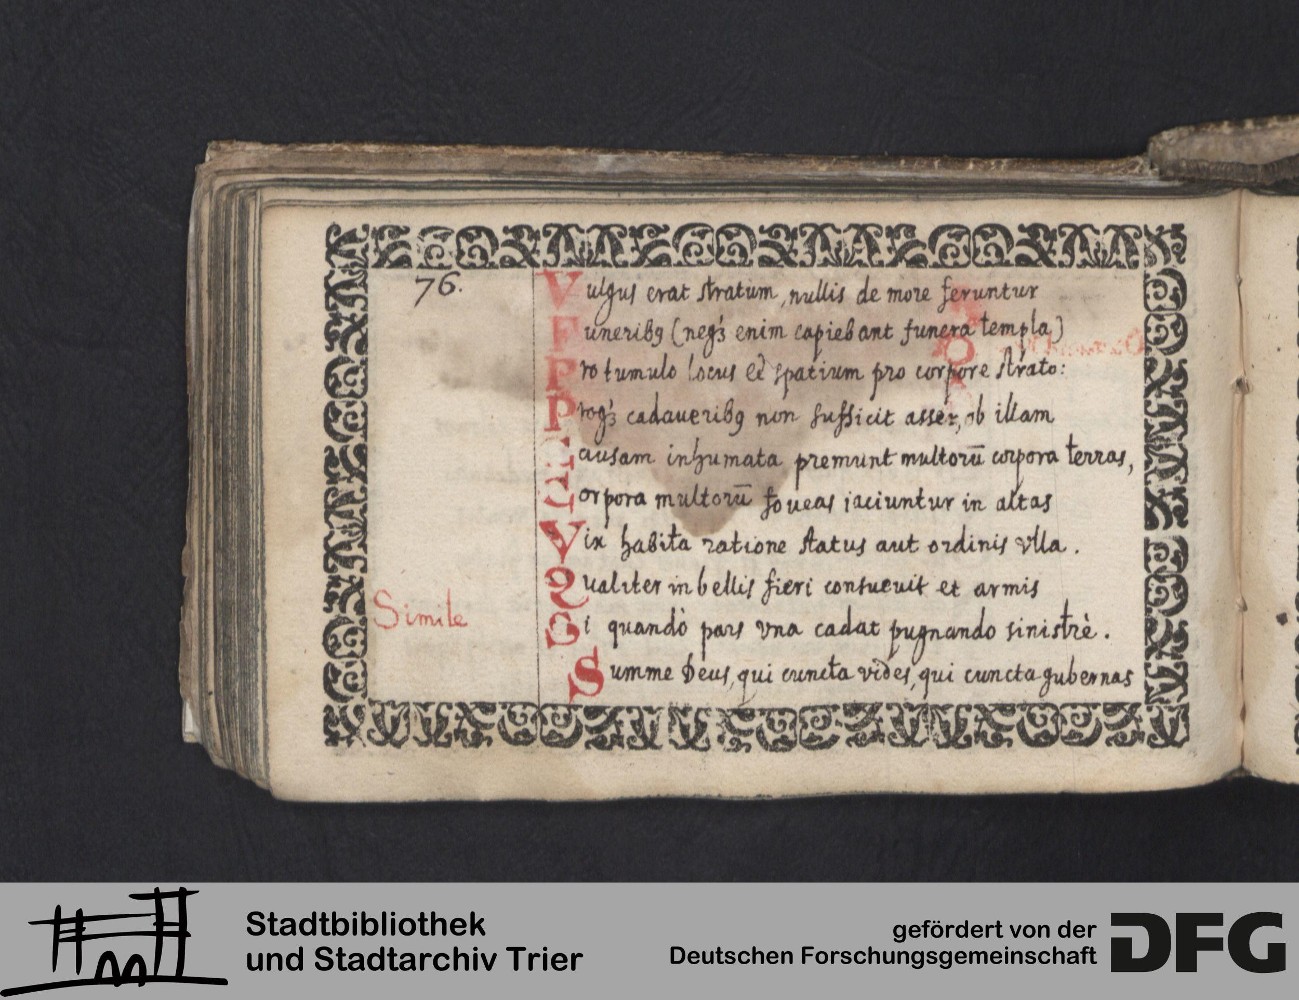 76.
Vulgus erat stratum, nullis de more feruntur
Funeribꝫ (neqꝫ enim capiebant funera templa)
Pro tumulo locus et spatium pro corpore strato:
Proqꝫ cadaueribꝫ non sufficit asser, ob illam
Causam inhumata premunt multorū corpora terras,
Corpora multorū foueas iaciuntur in altas
Vix habita ratione status aut ordinis vlla.
Qualiter in bellis fieri consueuit et armis
Simile
Si quandò pars vna cadat pugnando sinistrè.
Summe Deus, qui cuncta vides, qui cuncta gubernas
Stadtbibliothek
und Stadtarchiv Trier
gefördert von der
Deutschen Forschungsgemeinschaft
DFG